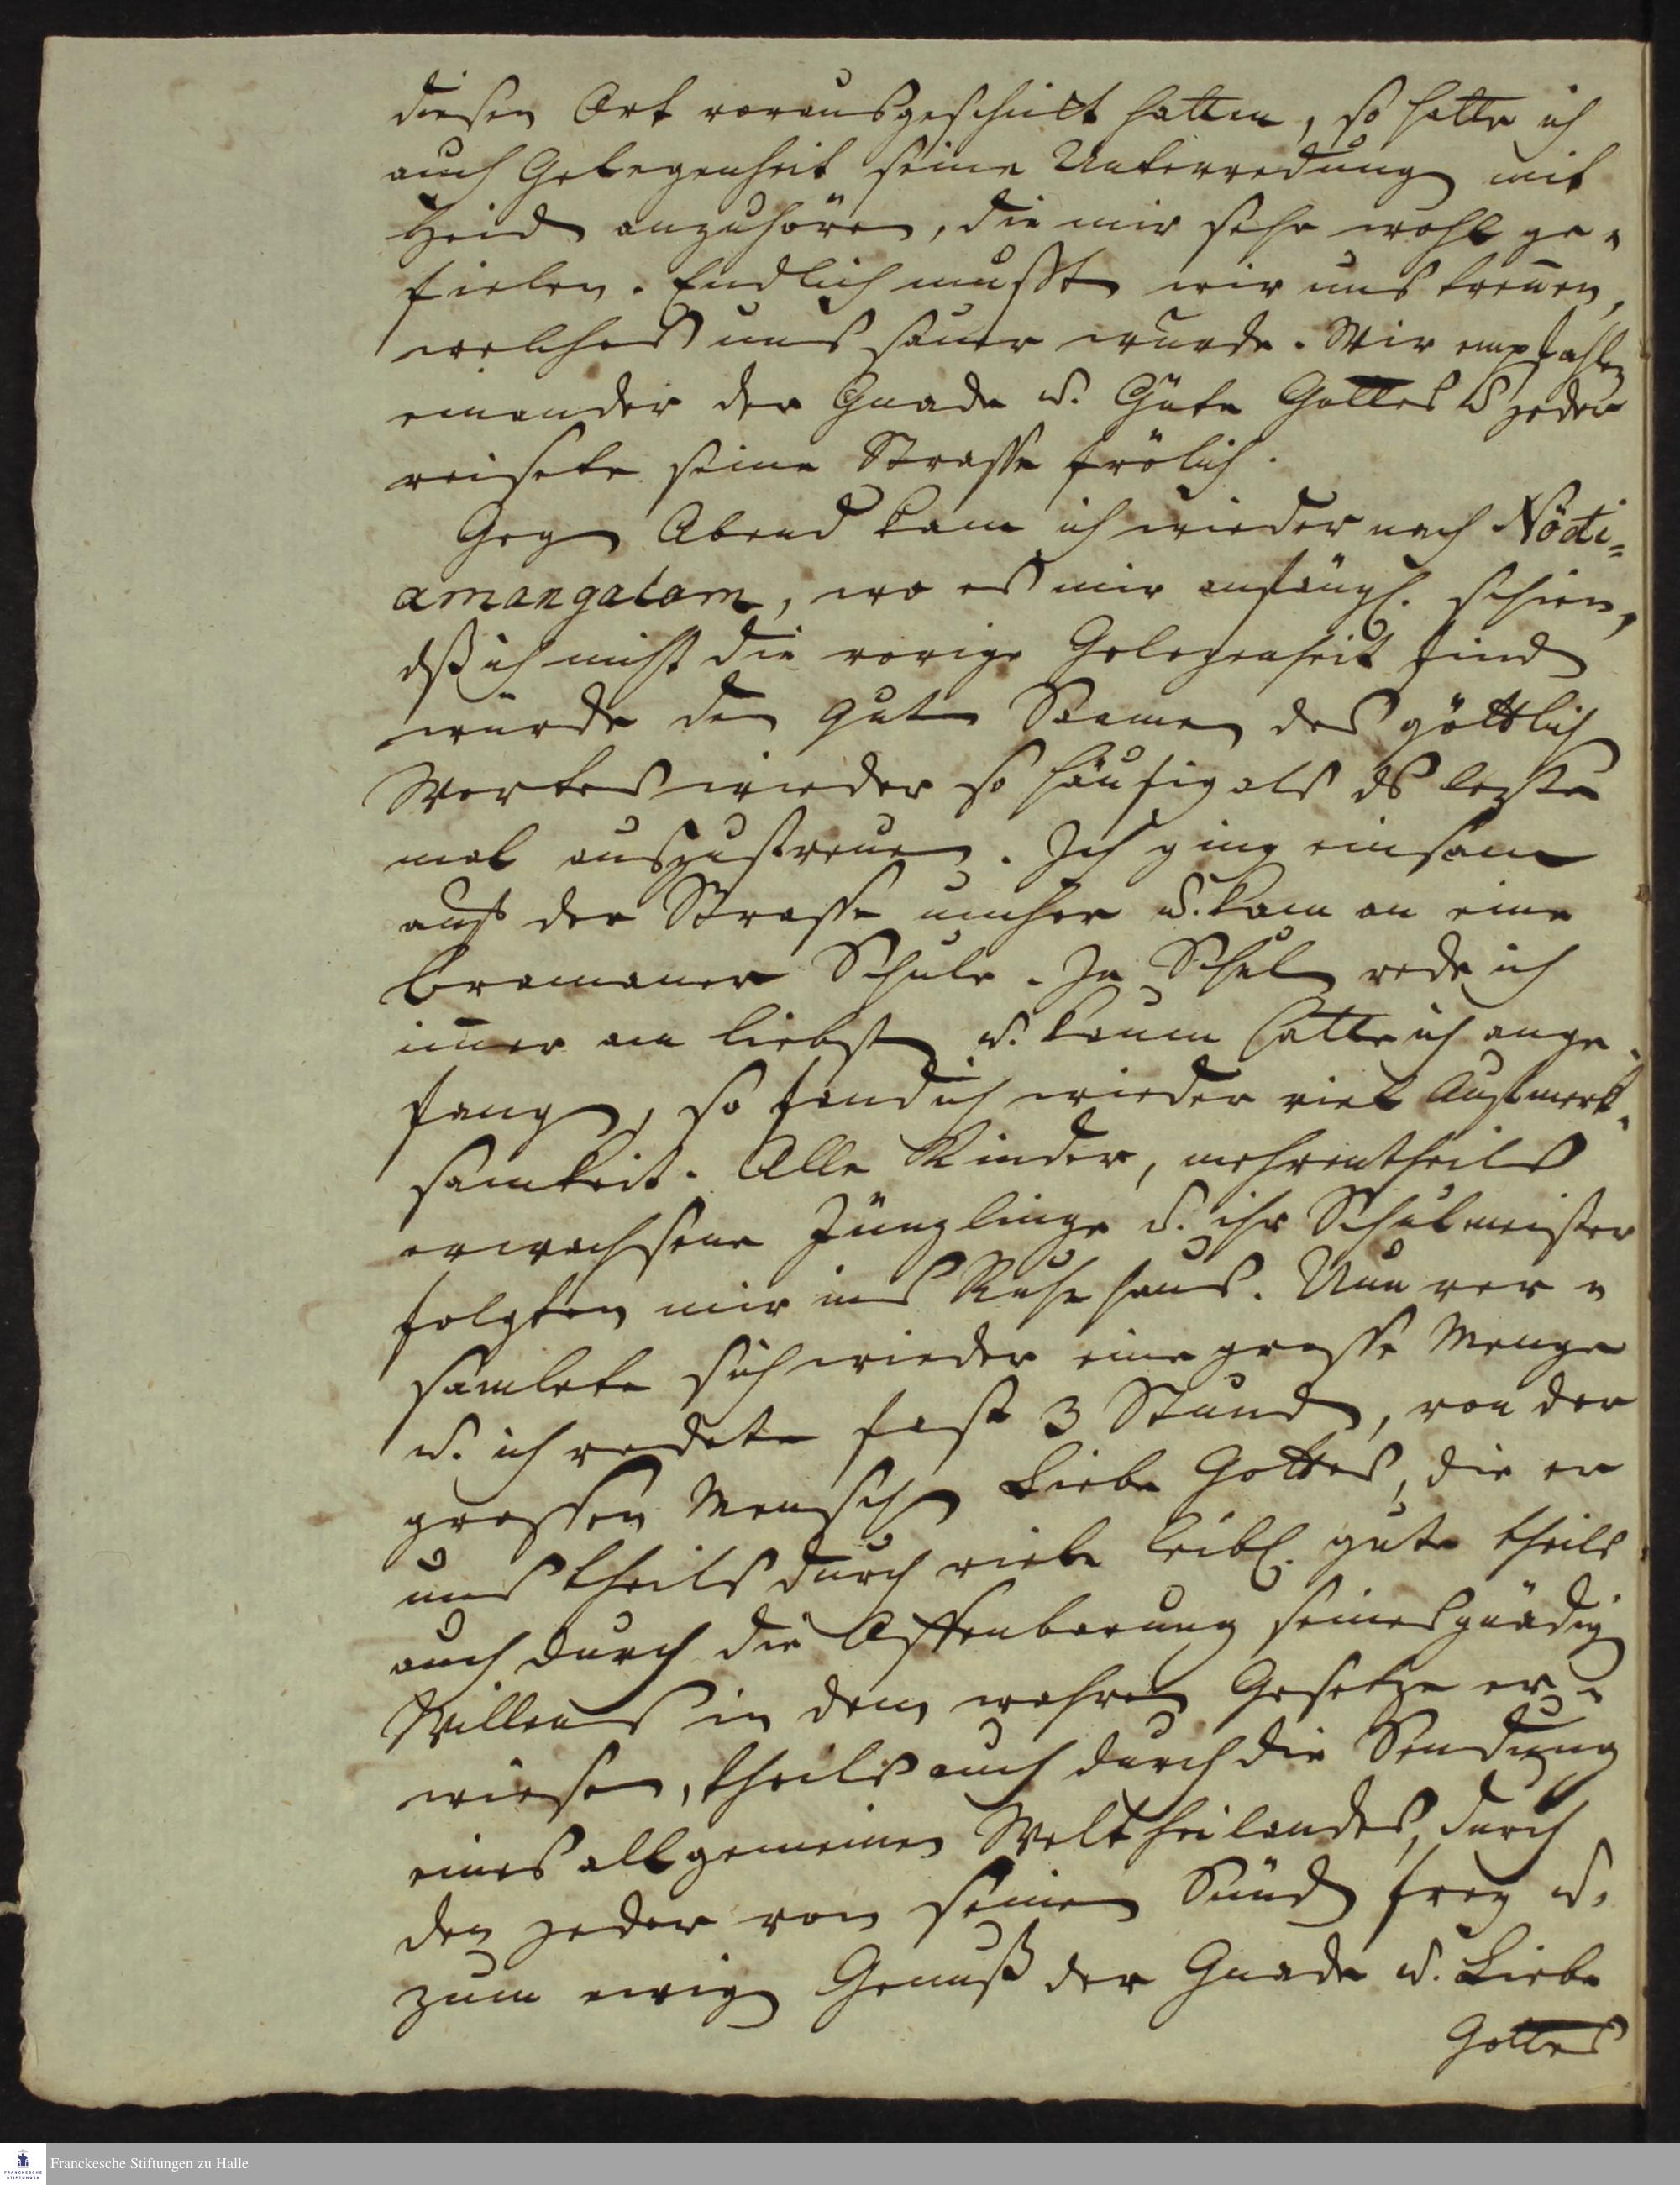 diesen Ort vorausgeschickt hatten, so hatte ich
auch Gelegenheit seine Unterredung mit
Heiden anzuhören, die mir sehr wohl ge-
fielen. Endlich mußten wir uns trennen,
welches uns sauer wurde. Wir empfahlen
einander der Gnade u. Güte Gottes u jeder
reisete seine Strasse frölich.
Gegen Abend kam ich wieder nach Nödi=
amangalam, wo es mir anfängl. schien,
dß ich nicht die vorige Gelegenheit finden
würde den guten Saamen des göttlichen
Wortes wieder so häufig als ds letzte
mal auszustreuen. Ich ging einsam
auf der Strasse umher u. kam an eine
Bramaner Schule. In Schulen rede ich
im̄er am liebsten u. kaum hatte ich ange-
fangen, so fand ich wieder viel Aufmerk-
samkeit. Alle Kinder, mehrentheils
erwachsene Jünglinge u. ihr Schulmeister
folgten mir ins Ruhehaus. Nun ver-
samlete sich wieder eine grosse Menge
u. ich redete fast 3 Stunden, von der
grossen Menschen Liebe Gottes, die er
uns theils durch viele leibl. gute theils
auch durch die Offenbarung seines gnädigen
Willens in dem wahren Gesetze er-
wiesen, theils auch durch die Sendung
eines allgemeinen Weltheilandes, durch
den jeder von seinen Sünden frey u.
zum ewigen Genuß der Gnade u. Liebe
Gottes
Franckesche Stiftungen zu Halle
FRANCKESCHE
STIFTUNGEN